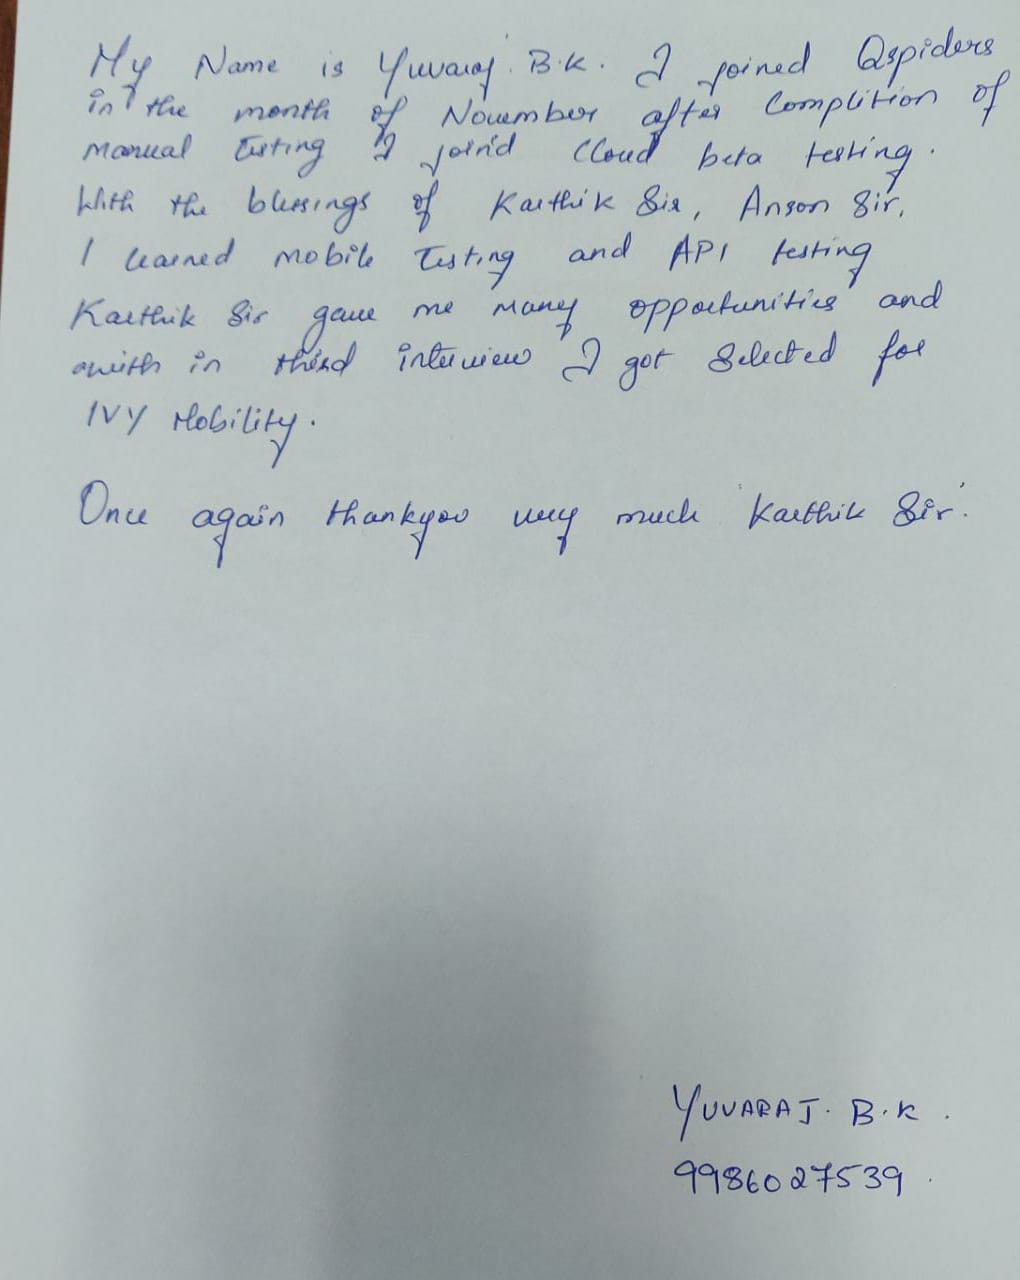 My Name is Yuvaraj. B.K. I joined Qspiders
in the month of November after Complition of
manual Testing I joind Cloud beta testing.
With the blessings of Karthik Sir, Anson Sir,
I learned mobile Testing and API testing
Karthik Sir gave me many opportunities and
with in third interview I got Selected for
IVY Mobility.
Once again thankyou very much Karthik Sir.
YUVARAJ. B.K.
9986027539.